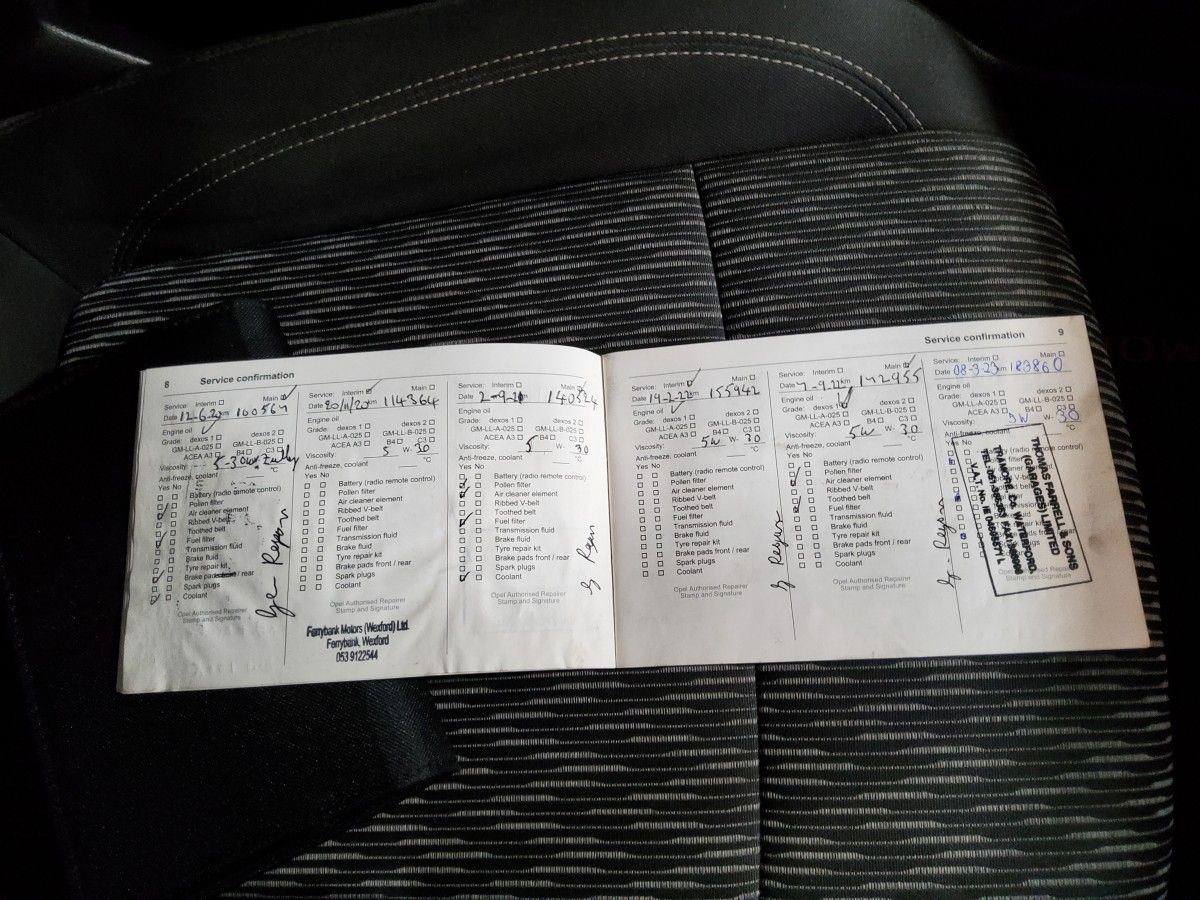 8 Service confirmation
Service: Interim ☐ Main ☐
Date 12-6-20 km 100567
Engine oil
Grade: dexos 1 ☐ dexos 2 ☐
GM-LL-A-025 ☐ GM-LL-B-025 ☐
ACEA A3 ☐ B4 ☐ C3 ☐
Viscosity: 5-30W
Anti-freeze, coolant °C
Yes No
Battery (radio remote control)
Pollen filter
Air cleaner element
Ribbed V-belt
Toothed belt
Fuel filter
Transmission fluid
Brake fluid
Tyre repair kit
Brake pads / rear
Spark plugs
Coolant
Opel Authorised Repairer
Stamp and Signature
Service: Interim ☐ Main ☐
Date 20/11/20 km 114364
Engine oil
Grade: dexos 1 ☐ dexos 2 ☐
GM-LL-A-025 ☐ GM-LL-B-025 ☐
ACEA A3 ☐ B4 ☐ C3 ☐
Viscosity: 5 W- 30
Anti-freeze, coolant °C
Yes No
Battery (radio remote control)
Pollen filter
Air cleaner element
Ribbed V-belt
Toothed belt
Fuel filter
Transmission fluid
Brake fluid
Tyre repair kit
Brake pads front / rear
Spark plugs
Coolant
Opel Authorised Repairer
Stamp and Signature
Ferrybank Motors (Wexford) Ltd.
Ferrybank, Wexford
053 9122544
Service: Interim ☐ Main ☐
Date 2-9-21 km 140524
Engine oil
Grade: dexos 1 ☐ dexos 2 ☐
GM-LL-A-025 ☐ GM-LL-B-025 ☐
ACEA A3 ☐ B4 ☐ C3 ☐
Viscosity: 5 W- 30
Anti-freeze, coolant °C
Yes No
Battery (radio remote control)
Pollen filter
Air cleaner element
Ribbed V-belt
Toothed belt
Fuel filter
Transmission fluid
Brake fluid
Tyre repair kit
Brake pads front / rear
Spark plugs
Coolant
Opel Authorised Repairer
Stamp and Signature
Service confirmation 9
Service: Interim ☐ Main ☐
Date 14-2-22 km 155942
Engine oil
Grade: dexos 1 ☐ dexos 2 ☐
GM-LL-A-025 ☐ GM-LL-B-025 ☐
ACEA A3 ☐ B4 ☐ C3 ☐
Viscosity: 5W W- 30
Anti-freeze, coolant °C
Yes No
Battery (radio remote control)
Pollen filter
Air cleaner element
Ribbed V-belt
Toothed belt
Fuel filter
Transmission fluid
Brake fluid
Tyre repair kit
Brake pads front / rear
Spark plugs
Coolant
Opel Authorised Repairer
Stamp and Signature
Service: Interim ☐ Main ☐
Date 7-9-22 km
Engine oil
Grade: dexos 1 ☐ dexos 2 ☐
GM-LL-A-025 ☐ GM-LL-B-025 ☐
ACEA A3 ☐ B4 ☐ C3 ☐
Viscosity: 5W W- 30
Anti-freeze, coolant °C
Yes No
Battery (radio remote control)
Pollen filter
Air cleaner element
Ribbed V-belt
Toothed belt
Fuel filter
Transmission fluid
Brake fluid
Tyre repair kit
Brake pads front / rear
Spark plugs
Coolant
Opel Authorised Repairer
Stamp and Signature
Service: Interim ☐ Main ☐
Date 08-3-23 km 183860
Engine oil
Grade: dexos 1 ☐ dexos 2 ☐
GM-LL-A-025 ☐ GM-LL-B-025 ☐
ACEA A3 ☐ B4 ☐ C3 ☐
Viscosity: 5W W- 30
Anti-freeze, coolant
Yes No
THOMAS FARRELL & SONS
(GARAGES) LIMITED
TRAMORE, CO. WATERFORD
Opel Authorised Repairer
Stamp and Signature